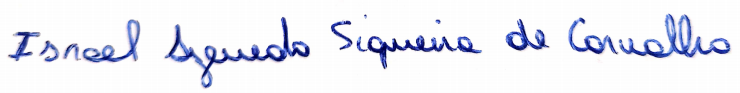 Israel Azevedo Siqueira de Carvalho